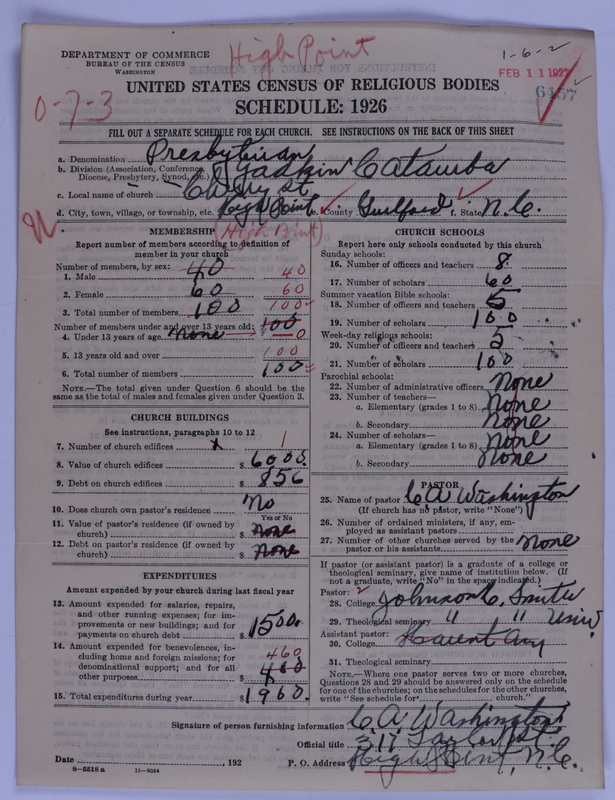 DEPARTMENT OF COMMERCE
BUREAU OF THE CENSUS
WASHINGTON
High Point
1-6-2
FEB 11 1927
UNITED STATES CENSUS OF RELIGIOUS BODIES
SCHEDULE: 1926
0-7-3
FILL OUT A SEPARATE SCHEDULE FOR EACH CHURCH. SEE INSTRUCTIONS ON THE BACK OF THIS SHEET
a. Denomination Presbyterian
b. Division (Association, Conference, Diocese, Presbytery, Synod, etc.) Yadkin Catawba
c. Local name of church Cherry St.
d. City, town, village, or township, etc. High Point e. County Guilford f. State N.C.
(High Point)
MEMBERSHIP
Report number of members according to definition of
member in your church
Number of members, by sex:
1. Male 40 40
2. Female 60 60
3. Total number of members 100 100
Number of members under and over 13 years old: 100
4. Under 13 years of age None 0
5. 13 years old and over 100
6. Total number of members 100
NOTE.—The total given under Question 6 should be the
same as the total of males and females given under Question 3.
CHURCH BUILDINGS
See instructions, paragraphs 10 to 12
7. Number of church edifices 1
8. Value of church edifices $ 6000.
9. Debt on church edifices $ 856
10. Does church own pastor's residence? No
Yes or No
11. Value of pastor's residence (if owned by
church) $ None
12. Debt on pastor's residence (if owned by
church) $ None
EXPENDITURES
Amount expended by your church during last fiscal year
13. Amount expended for salaries, repairs,
and other running expenses; for im-
provements or new buildings; and for
payments on church debt $ 1500.
14. Amount expended for benevolences, in-
cluding home and foreign missions; for
denominational support; and for all
other purposes $ 460
15. Total expenditures during year $ 1960.
CHURCH SCHOOLS
Report here only schools conducted by this church
Sunday schools:
16. Number of officers and teachers 8
17. Number of scholars 60
Summer vacation Bible schools:
18. Number of officers and teachers 5
19. Number of scholars 100
Week-day religious schools:
20. Number of officers and teachers 5
21. Number of scholars 100
Parochial schools:
22. Number of administrative officers None
23. Number of teachers—
a. Elementary (grades 1 to 8) None
b. Secondary None
24. Number of scholars—
a. Elementary (grades 1 to 8) None
b. Secondary None
PASTOR
25. Name of pastor C A Washington
(If church has no pastor, write "None")
26. Number of ordained ministers, if any, em-
ployed as assistant pastors
27. Number of other churches served by the
pastor or his assistants None
If pastor (or assistant pastor) is a graduate of a college or
theological seminary, give name of institution below. (If
not a graduate, write "No" in the space indicated.)
Pastor: 2
28. College Johnson C. Smith
29. Theological seminary " " Univ.
Assistant pastor:
30. College Havent Any
31. Theological seminary
NOTE.—Where one pastor serves two or more churches,
Questions 28 and 29 should be answered only on the schedule
for one of the churches; on the schedules for the other churches,
write "See schedule for church."
Signature of person furnishing information C A Washington
Official title 311 Taylor St.
Date , 192 P. O. Address High Point, N.C.
8—5518 a 11—9054